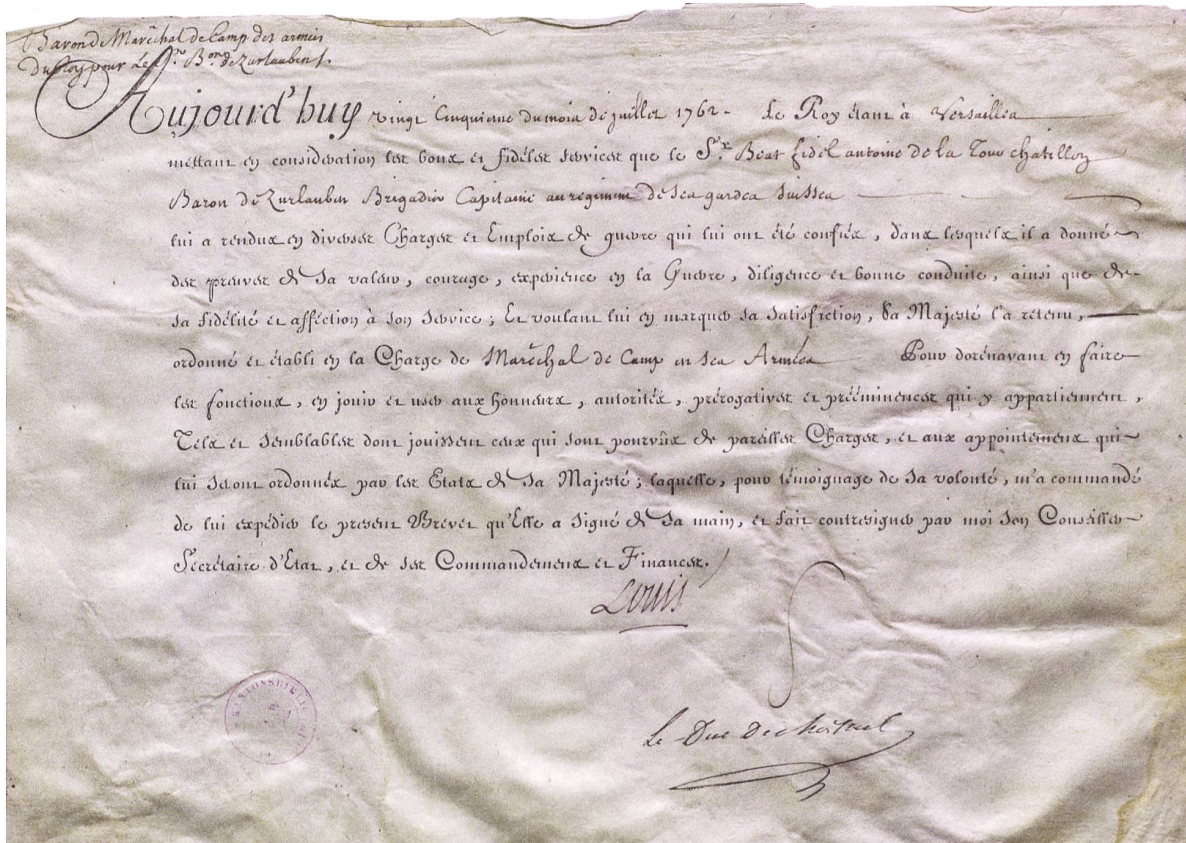 Baron de Maréchal de Camp des armées
du Roy pour Le S.r B.on de Zurlauben
Aujourd'huy vingt Cinquieme du mois de juillet 1762. Le Roy étant à Versailles
mettant en considération les bons et fidéles services que le S.r Béat fidel antoine de la Tour chatillon
Baron de Zurlauben Brigadier Capitaine au régiment de ses gardes suisses
lui a rendus en diverses Charges et Emplois de guerre qui lui ont été confiés, dans lesquels il a donné
des preuves de Sa valeur, courage, expérience en la Guerre, diligence et bonne conduite, ainsi que de
sa fidélité et affection à son Service; Et voulant lui en marquer sa Satisfaction, Sa Majesté l'a retenu,
ordonné et établi en la Charge de Maréchal de Camp en ses Armées Pour dorénavant en faire
les fonctions, en jouir et user aux honneurs, autorités, prérogatives et prééminences qui y appartiennent,
Tels et Semblables dont jouissent ceux qui sont pourvûs de pareilles Charges, et aux appointemens qui
lui seront ordonnés par les Etats de Sa Majesté; laquelle, pour témoignage de Sa volonté, m'a commandé
de lui expédier le présent Brevet qu'Elle a Signé de Sa main, et fait contresigner par moi Son Conseiller
Sécrétaire d'Etat, et de ses Commandemens et Finances.
Louis
Le Duc De choiseul